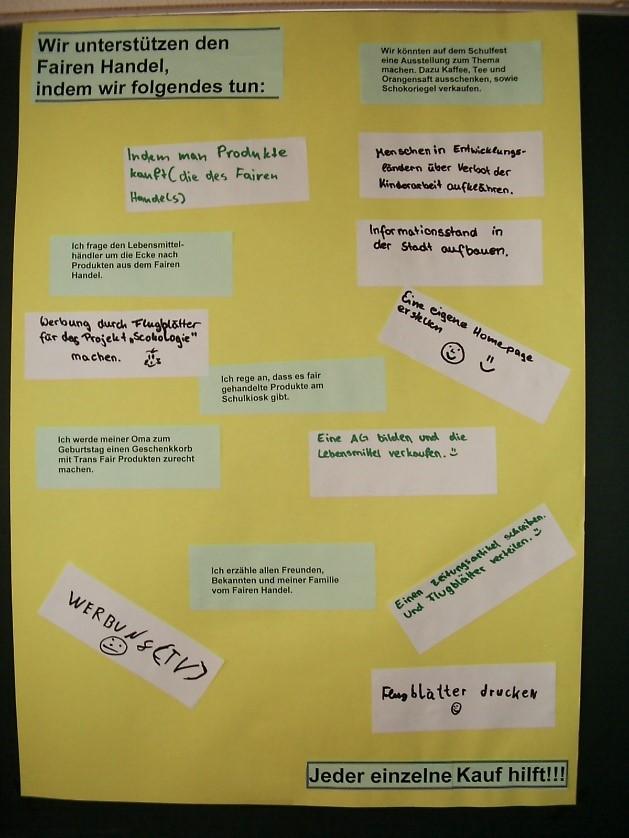 Wir unterstützen den
Fairen Handel,
indem wir folgendes tun:
Wir könnten auf dem Schulfest
eine Ausstellung zum Thema
machen. Dazu Kaffee, Tee und
Orangensaft ausschenken, sowie
Schokoriegel verkaufen.
Indem man Produkte
kauft (die des Fairen
Handels)
Menschen in Entwicklungs-
ländern über Verbot der
Kinderarbeit aufklähren.
Ich frage den Lebensmittel-
händler um die Ecke nach
Produkten aus dem Fairen
Handel.
Informationsstand in
der Stadt aufbauen.
Werbung durch Flugblätter
für das Projekt „Scokologie"
machen.
Eine eigene Homepage
erstellen
Ich rege an, dass es fair
gehandelte Produkte am
Schulkiosk gibt.
Ich werde meiner Oma zum
Geburtstag einen Geschenkkorb
mit Trans Fair Produkten zurecht
machen.
Eine AG bilden und die
Lebensmittel verkaufen.
Einen Zeitungsartikel schreiben.
und Flugblätter verteilen.
Ich erzähle allen Freunden,
Bekannten und meiner Familie
vom Fairen Handel.
WERBUNG (TV)
Flugblätter drucken
Jeder einzelne Kauf hilft!!!